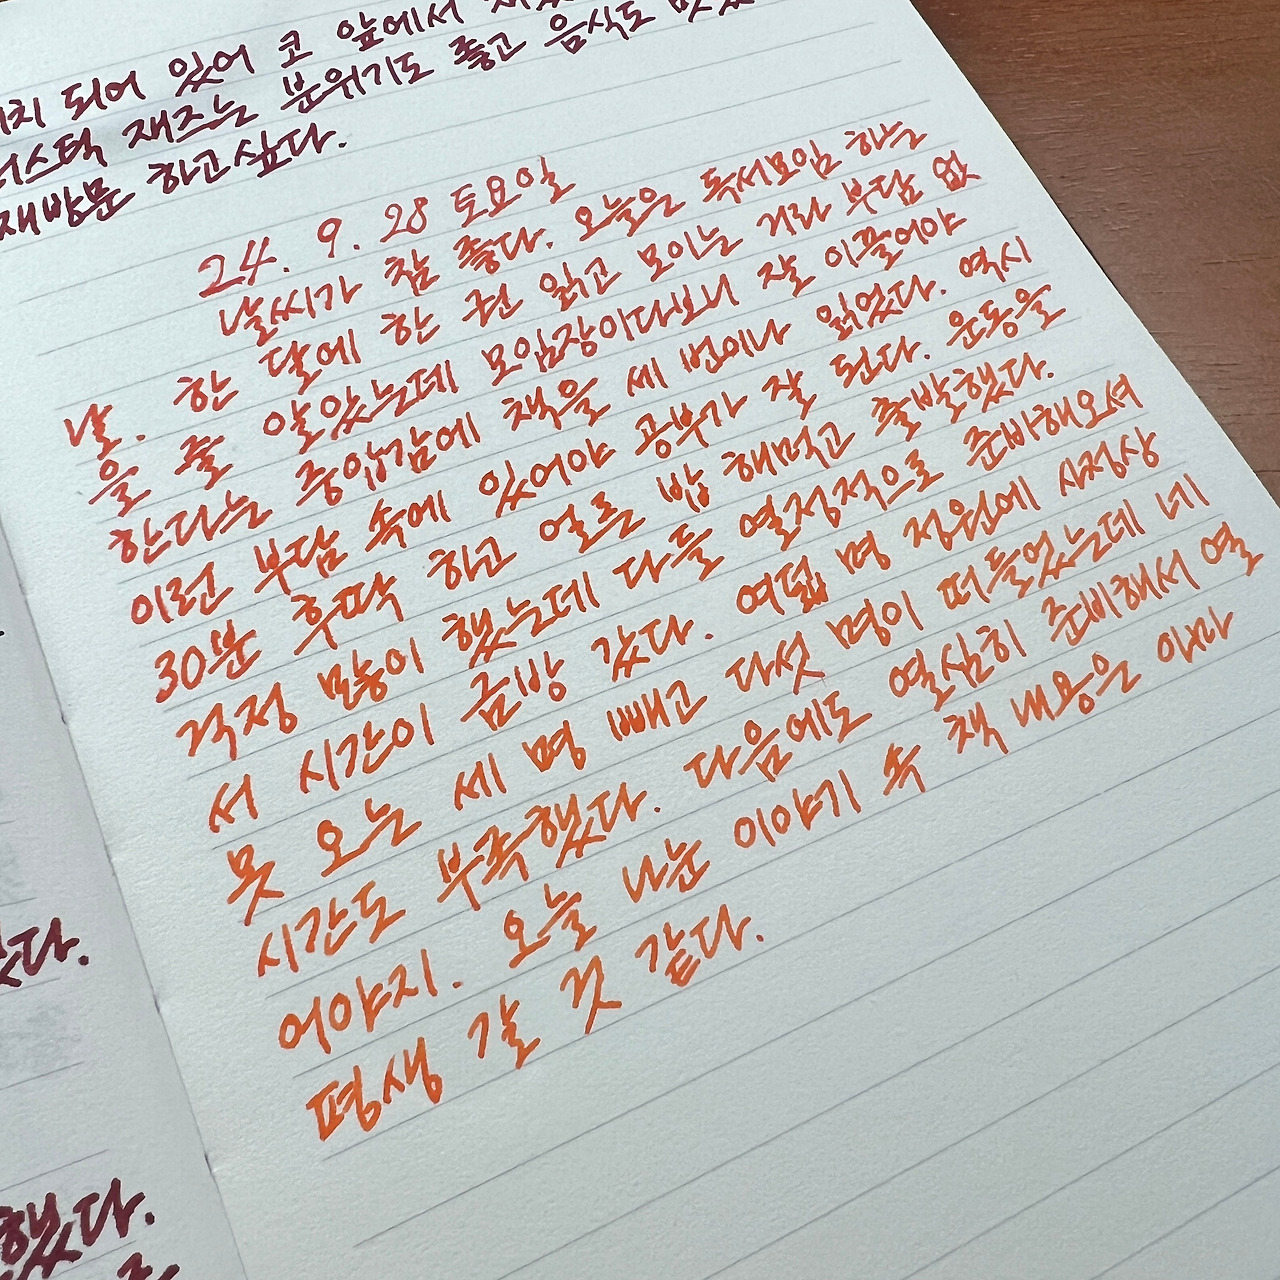 되어 있어 코 앞에서
재즈는 분위기도 좋고 음식도
재방문 하고싶다.
24. 9. 28 토요일
날씨가 참 좋다. 오늘은 독서모임 하는
날. 한 달에 한 권 읽고 모이는 거라 부담 없
을 줄 알았는데 모임장이다보니 잘 이끌어야
한다는 중압감에 책을 세 번이나 읽었다. 역시
이런 부담 속에 있어야 공부가 잘 된다. 운동을
30분 후딱 하고 얼른 밥 해먹고 출발했다.
걱정 많이 했는데 다들 열정적으로 준비해오셔
서 시간이 금방 갔다. 여덟 명 정원에 사정상
못 오는 세 명 빼고 다섯 명이 떠들었는데 네
시간도 부족했다. 다음에도 열심히 준비해서 열
어야지. 오늘 나눈 이야기 속 책 내용은 아마
평생 갈 것 같다.
했다.